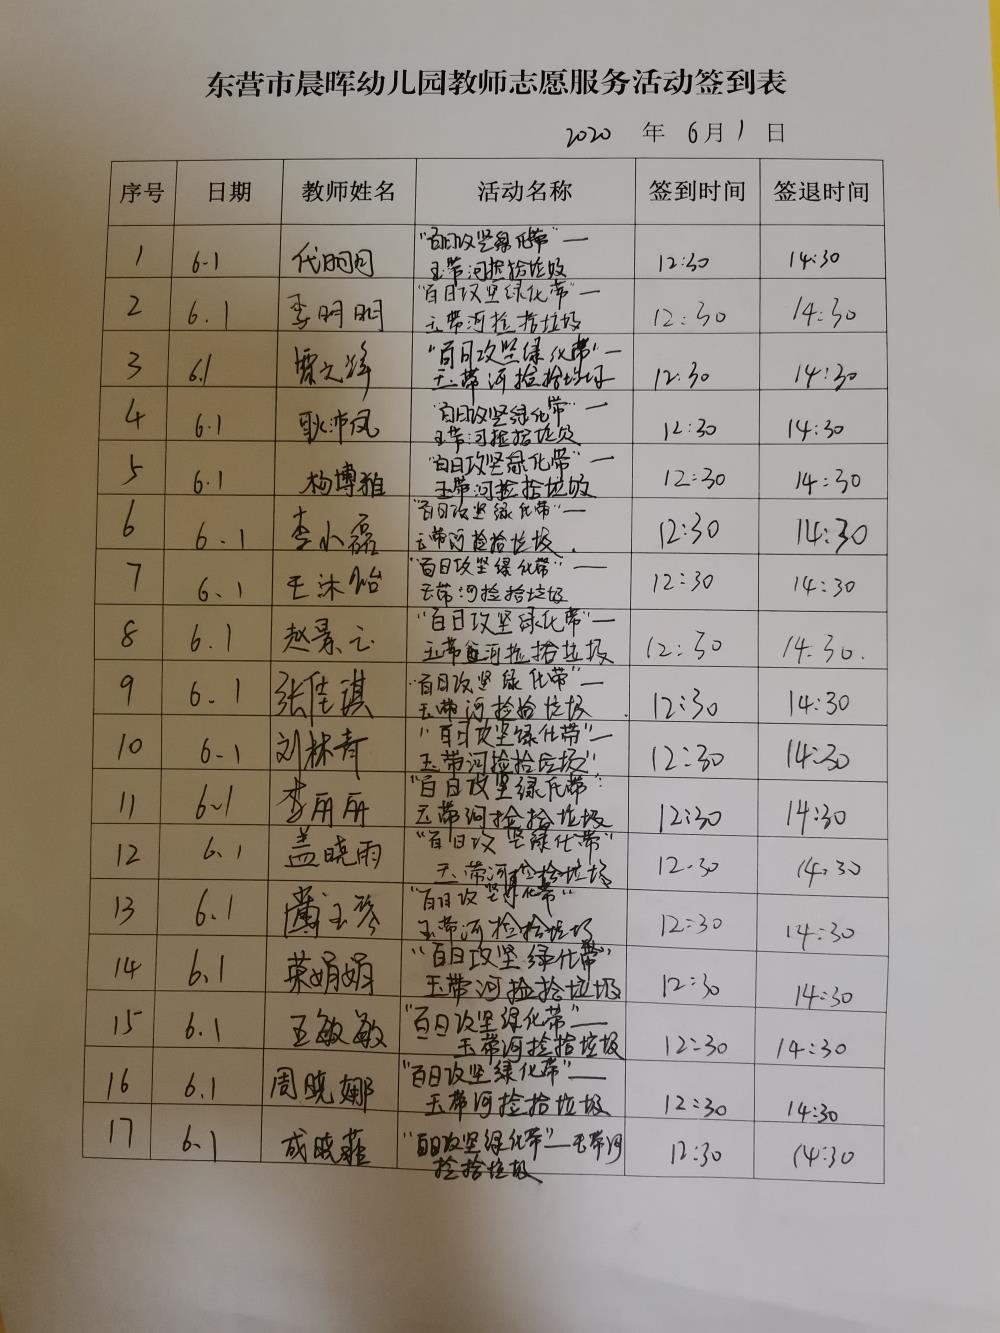 东营市晨晖幼儿园教师志愿服务活动签到表
2020 年 6月1 日
序号 日期 教师姓名 活动名称 签到时间 签退时间
1 6.1 代明月 "百日攻坚绿化带"— 12:30 14:30
玉带河捡拾垃圾
2 6.1 李明明 "百日攻坚绿化带"— 12:30 14:30
玉带河捡拾垃圾
3 6.1 "百日攻坚绿化带"— 12:30 14:30
玉带河捡拾垃圾
4 6.1 耿沛凤 "百日攻坚绿化带"— 12:30 14:30
玉带河捡拾垃圾
5 6.1 杨博雅 "百日攻坚绿化带"— 12:30 14:30
玉带河捡拾垃圾
6 6.1 李小磊 "百日攻坚绿化带"— 12:30 14:30
玉带河捡拾垃圾.
7 6.1 王沐怡 "百日攻坚绿化带"— 12:30 14:30
玉带河捡拾垃圾
8 6.1 赵景云 "百日攻坚绿化带"— 12:30 14:30.
玉带河捡拾垃圾
9 6.1 张佳琪 "百日攻坚绿化带"— 12:30 14:30
玉带河捡拾垃圾
10 6.1 刘林青 "百日攻坚绿化带"— 12:30 14:30
玉带河捡拾垃圾"
11 6.1 李丽丽 "百日攻坚绿化带" 12:30 14:30
玉带河捡拾垃圾
12 6.1 盖晓雨 "百日攻坚绿化带" 12:30 14:30
玉带河捡拾垃圾
13 6.1 "百日攻坚绿化带" 12:30 14:30
玉带河捡拾垃圾
14 6.1 荣娟娟 "百日攻坚绿化带" 12:30 14:30
玉带河捡拾垃圾
15 6.1 王敏敏 "百日攻坚绿化带"— 12:30 14:30
玉带河捡拾垃圾
16 6.1 周晓娜 "百日攻坚绿化带"— 12:30 14:30
玉带河捡拾垃圾
17 6.1 成晓菲 "百日攻坚绿化带"—玉带河 12:30 14:30
捡拾垃圾